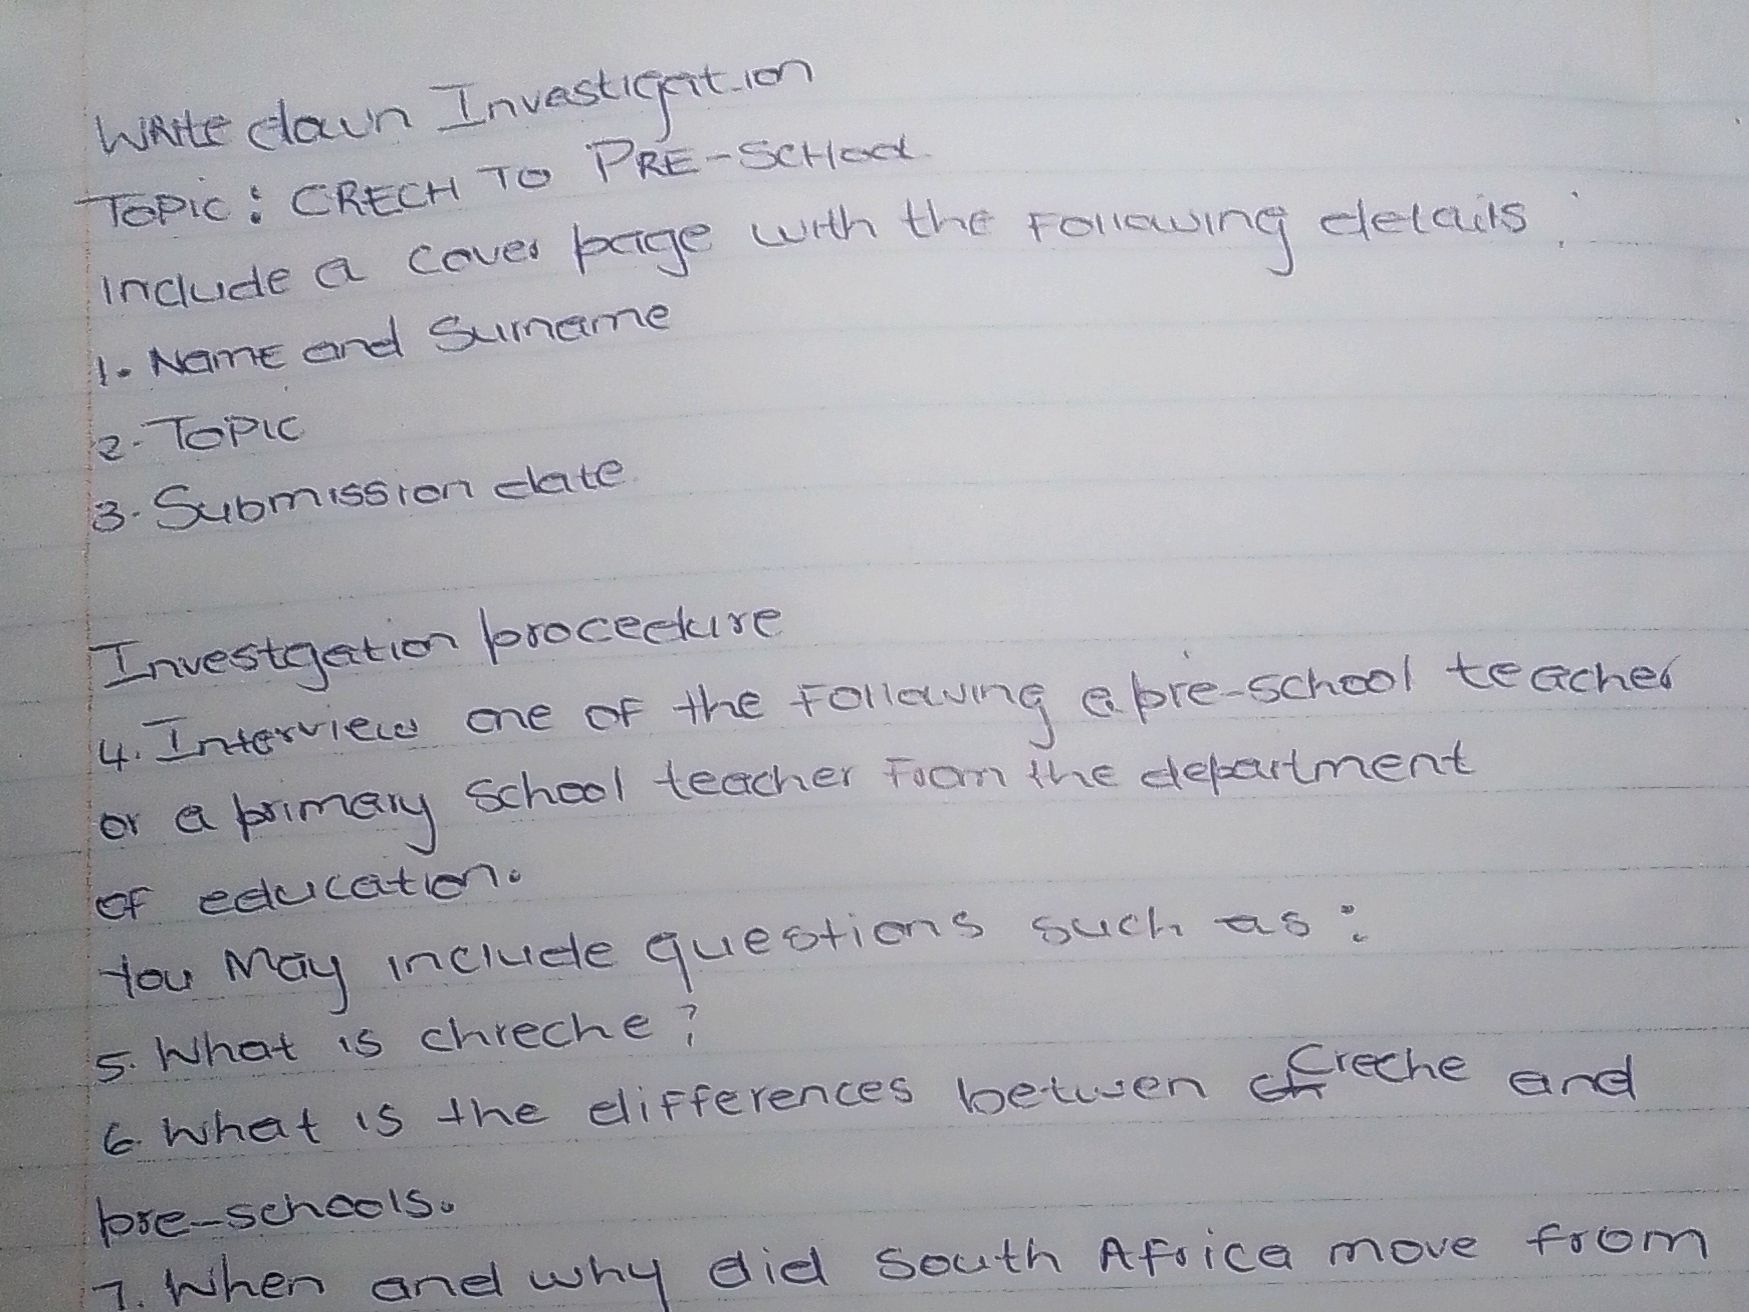 Write down Investigation
Topic: CRECH TO PRE-SCHOOL
include a cover page with the Following details:
1. Name and Surname
2. Topic
3. Submission date
Investgation procedure
4. Interview one of the Following a pre-school teacher
or a primary school teacher From the department
of education.
You May include questions such as:
5. What is chreche?
6. What is the differences betwen Creche and
pre-schools.
7. When and why did South Africa move from